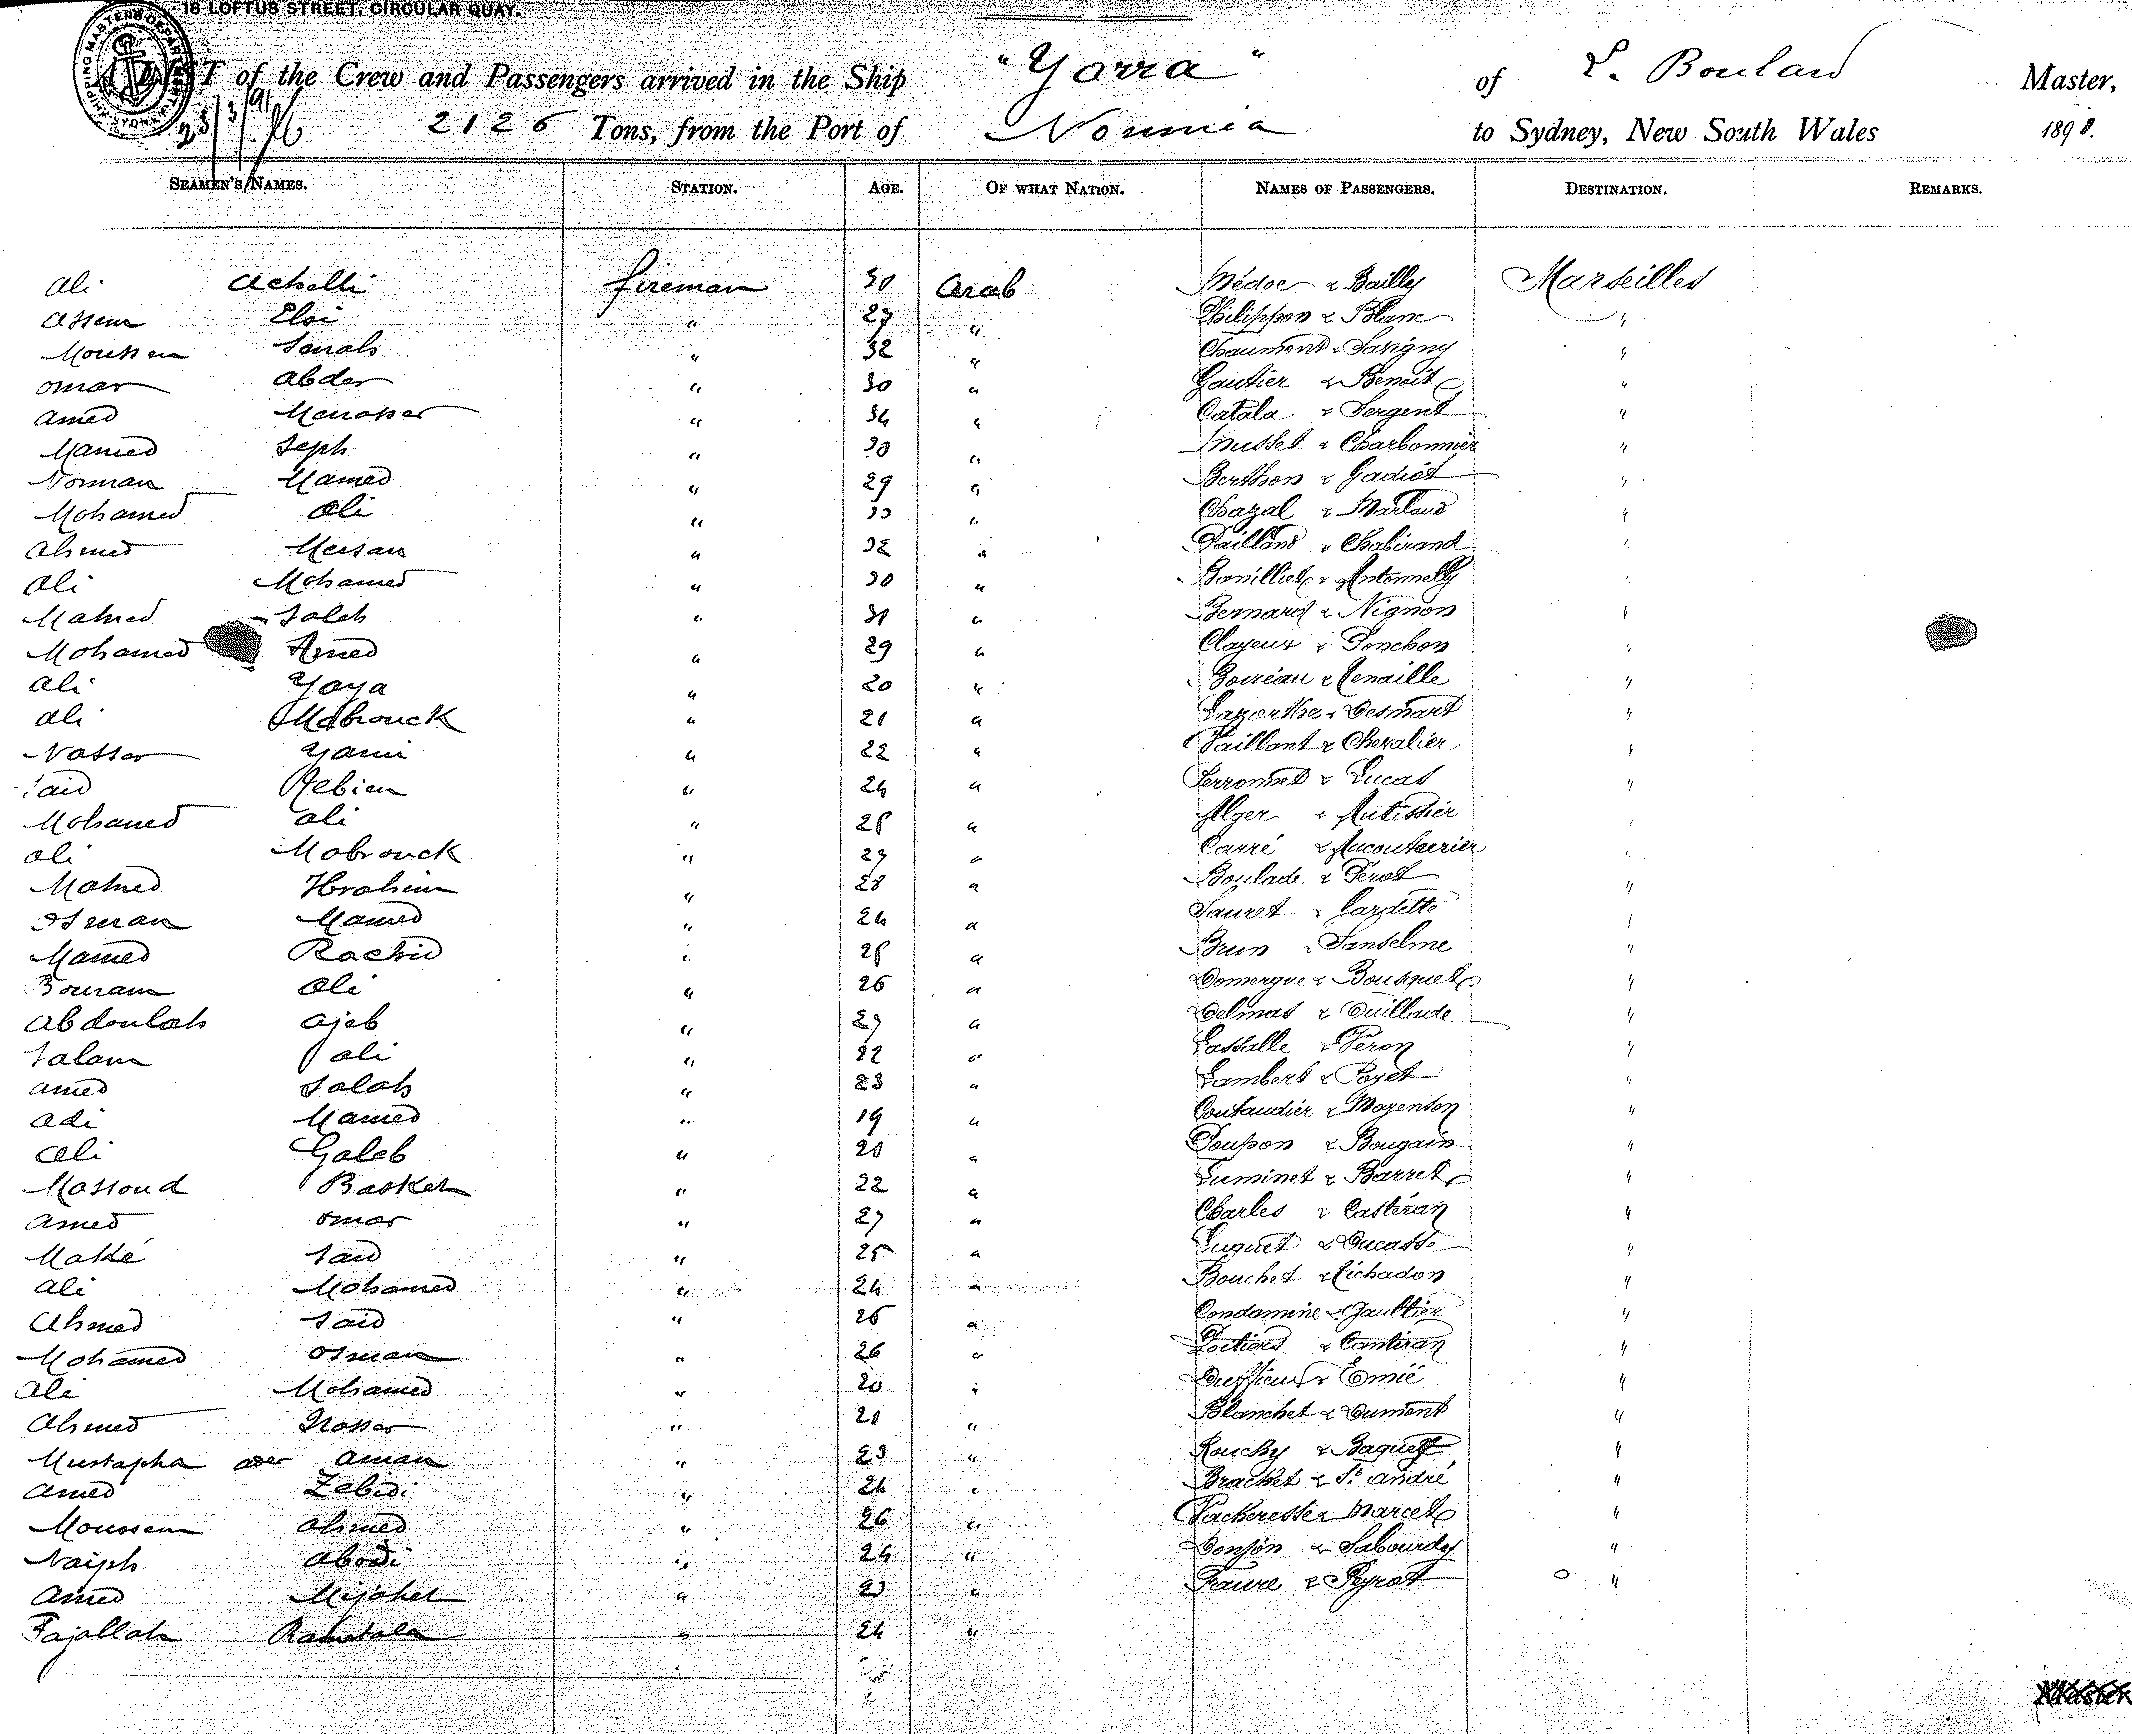 16 LOFTUS STREET, CIRCULAR QUAY.
LIST of the Crew and Passengers arrived in the Ship "Yarra" of L. Boulard Master,
2126 Tons, from the Port of Noumea to Sydney, New South Wales 1898.
SEAMEN'S NAMES. STATION. AGE. OF WHAT NATION. NAMES OF PASSENGERS. DESTINATION. REMARKS.
Ali Achelli fireman 30 Arab Médoc & Bailly Marseilles
Assem Eloi " 27 " Philippon & Blanc "
Moussem Sarah " 32 " Chaumont & Savigny "
Omar Abder " 30 " Gautier & Benoit "
Amed " 34 " Catala & Sergent "
Mamed Seph " 30 " Musset & Charbonnier "
Norman Mamed " 29 " Berthon & Gadiot "
Mohamed Ali " 33 " Chazal & "
Ahmed Meisan " 32 " & Chabirand "
Ali Mohamed " 30 " & Antonnelly "
Mahmed Saleh " 31 " Bernard & Nignon "
Mohamed Amed " 29 " Clayeux & Ponchon "
Ali Yaya " 20 " Boireau & Renaille "
Ali Mabrouck " 21 " Lazerthe & Desmart "
Nasser Yami " 22 " Vaillant & Chevalier "
Said Rebien " 24 " & Lucas "
Mohamed Ali " 28 " Alger & Autissier "
Ali Mobrouck " 27 " Carré & Aucouturier "
Mahmed Ibrahim " 28 " Boulade & Perot "
Osman Mamed " 24 " Sauret & Cardette "
Mamed Rachid " 28 " Brun & Sanselme "
Bouram Ali " 26 " Domergue & Bousquet "
Abdoulah Ajeb " 27 " Delmas & Duillade "
Salam Ali " 22 " Lassalle & Peron "
Amed Salah " 23 " Lambert & Poyet "
Adi Mamed " 19 " Coutaudier & Moyenton "
Ali Galeb " 20 " Poupon & Bougain "
Massoud Basket " 22 " Luminet & Barret "
Amed Omar " 27 " Charles & Casteran "
Makké Said " 25 " Luquet & Ducasse "
Ali Mohamed " 24 " Bouchet & Richadon "
Ahmed Said " 26 " Condamine & Gaultier "
Mohamed Osman " 26 " Poitiers & Canteran "
Ali Mohamed " 20 " & Emié "
Ahmed Nasser " 21 " Blanchet & Dumont "
Mustapha Aman " 23 " Rouchy & Baquet "
Amed Zebidi " 24 " Brachet & St André "
Moussem Ahmed " 26 " Vacheresse & Marcet "
Naiph Abodi " 24 " Donjon & Labourdy "
Amed " 23 " Faure & Peyrot "
Fajallah Ramatala " 24 "